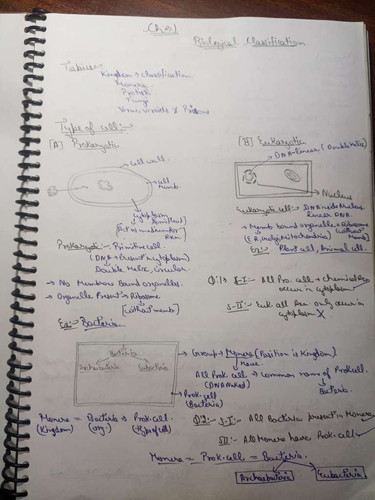 Ch-2
Biological Classification
Topics:-
Kingdom → classification
Monera
Protista
Fungi
Virus, viroids
Types of cell:-
[A] Prokaryotic
[B] Eukaryotic
→ DNA-linear (Double helix)
→ Cell wall
→ Cell memb.
→ cytoplasm
→ Nucleus
Prokaryotic:- Primitive cell.
(DNA → Present in cytoplasm)
Double Helix, circular.
→ No Membrane Bound organelles.
→ Organelle Present is Ribosome
[without memb.]
Eukaryotic cell:- DNA
Linear DNA.
→ Memb bound organelles
Ex:- Plant cell, Animal cell.
Q.1 S-I:- All Pro. cell + chemical
occur in cytoplasm
S-II:- Euk. cell Rxn only occur in
cytoplasm X
Ex:- Bacteria.
Bacteria
Archaebacteria
Eubacteria
→ Group → Monera (Position is Kingdom)
have
All Prok. cell → Common name of Prok cell
(DNA Naked)
Bacteria.
→ Prok. cell
(Bacteria)
Monera = Bacteria → Prok. cell
(Kingdom) (org.) (type of cell)
Q2:- S-I:- All Bacteria present in Monera
SII:- All Monera have Prok. cell
Monera = Prok. cell = Bacteria.
Archaebacteria
Eubacteria